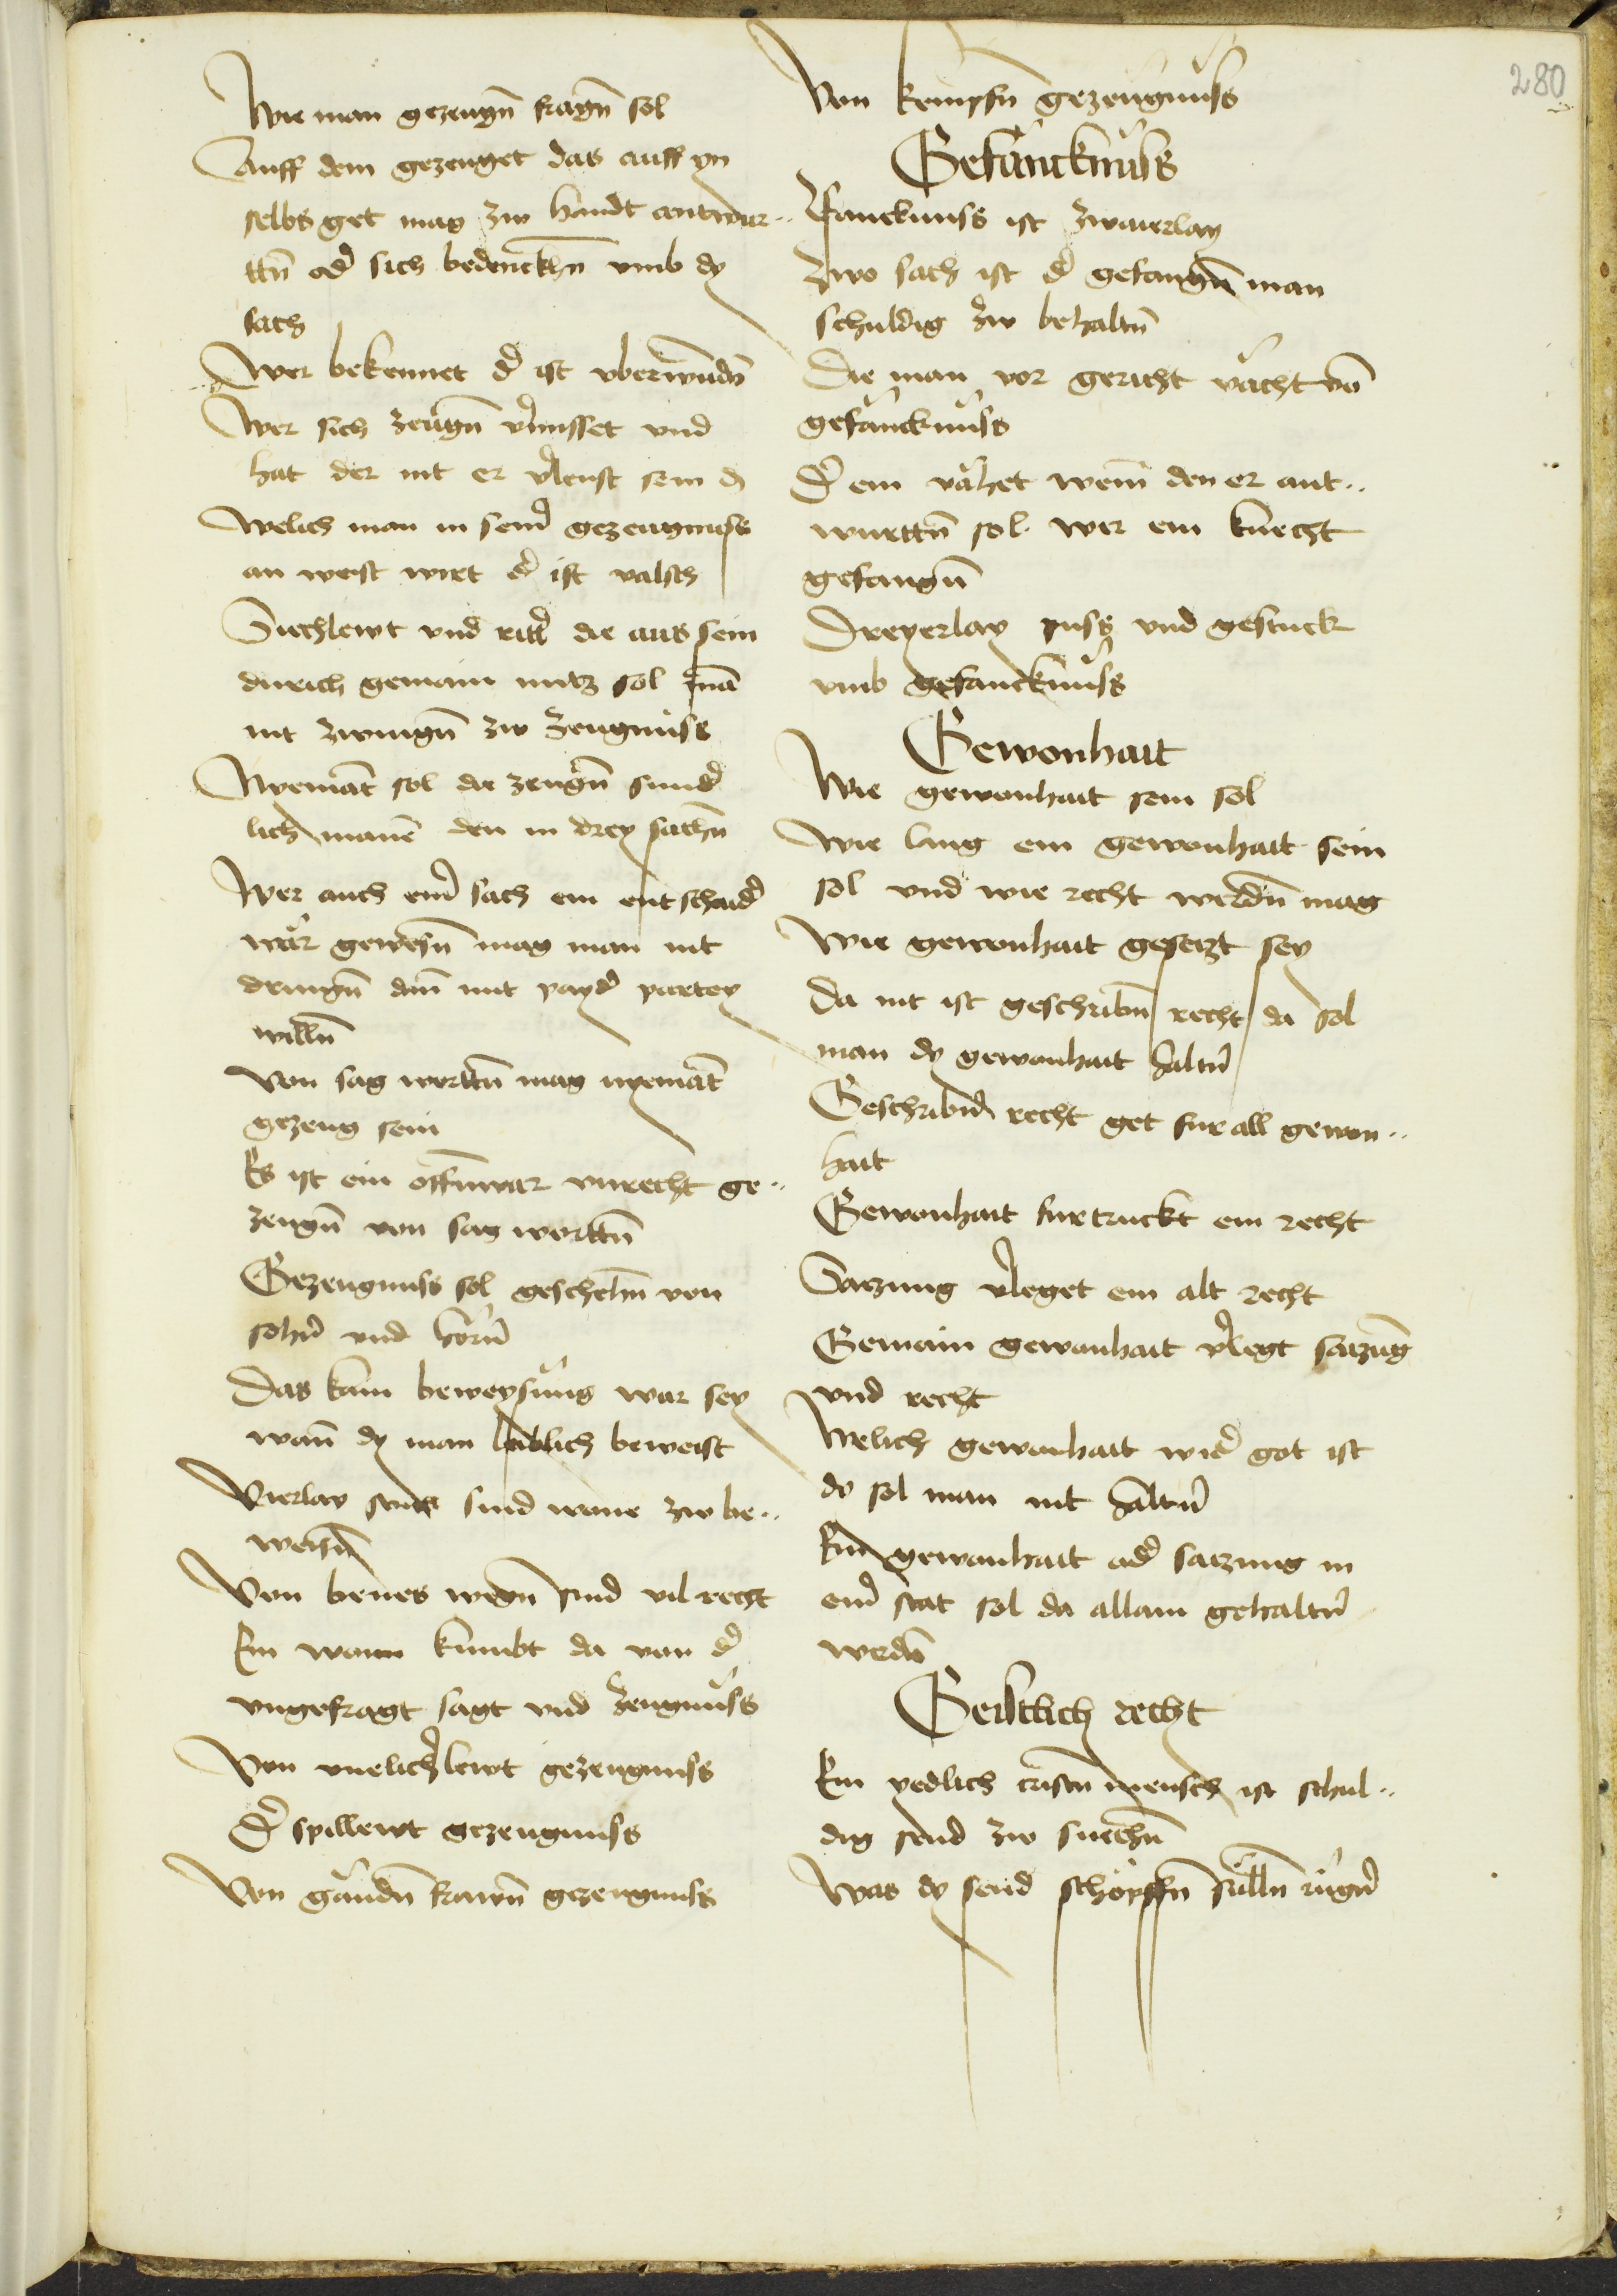 280
Wie man gezeugn̄ fragn̄ sol
Auff dem gezeuget das auff yn
selbs get mag zw handt antwur..
ttn̄ od̄ sich bedenckhn̄ vmb dy
sach
Wer bekennet d̄ ist vberwundn̄
Wer sich zeugn̄ v̄misset vnd
hat der nit er v̄leust sein
Welich man in sein̄ gezeugnuss
an weist wirt d̄ ist valsch
Siechlewt vnd ritt̄ die aus sein
durich gemain nutz sol mā
nit zwingn̄ zw zeugnuss
Nyemāt sol die zeugn̄ sund̄
lich manē den in drey sachn̄
Wer auch ein̄ sach ein entschaid̄
wär gewesn̄ mag man nit
dringn̄ dan̄ mit payd̄ partey
willn̄
Von sag worttn̄ mag nyemāt
gezeug sein
Es ist ein offnwar vnrecht ge..
zeugn̄ von sag worttn̄
Gezeugnuss sol geschehn̄ von
sehn̄ vnd hörn̄
Das kain beweysung war sey
wan̄ dy man leiblich beweist
Vierlay sind zw be..
weisn̄
Von wegn̄ sind vil recht
Ein kumbt da von d̄
vngefragt sagt vnd zeugnuss
Von vnelich̄ lewt gezeugnuss
D̄ spillewt gezeugnuss
Von frawn̄ gezeugnuss
Von kempfn̄ gezeugnuss
Gefanncknuss
Fancknuss ist zwaierlay
Zwo sach ist d̄ gefangn̄ man
schuldig zw behaltn̄
Die man vor gericht vächt vō
gefäncknuss
D̄ ein vähet wem̄ den er ant..
wurttn̄ sol wer ein knecht
gefangn̄
Dreyerlay puss vnd gestuck
vmb gefancknuss
Gewonhait
Wie gewonhait sein sol
Wie lang ein gewonhait sein
sol vnd wie recht werdn̄ mag
Wie gewonhait gesetzt sey
Da nit ist geschribn̄ recht da sol
man dy gewonhait haltn̄
Geschribn̄ recht get fur all gewon..
hait
Gewonhait furtruckt ein recht
Satzung v̄leget ein alt recht
Gemain gewonhait v̄legt satzūg
vnd recht
Welich gewonhait wid̄ got ist
dy sol man nit haltn̄
Ein gewonhait od̄ satzung in
ein̄ stat sol da allain gehaltn̄
werdn̄
Geistlich recht
Ein yedlich cristn̄ mensch ist schul..
dig send zw suechn̄
Was dy send schöpffn̄ sülln̄ rügn̄